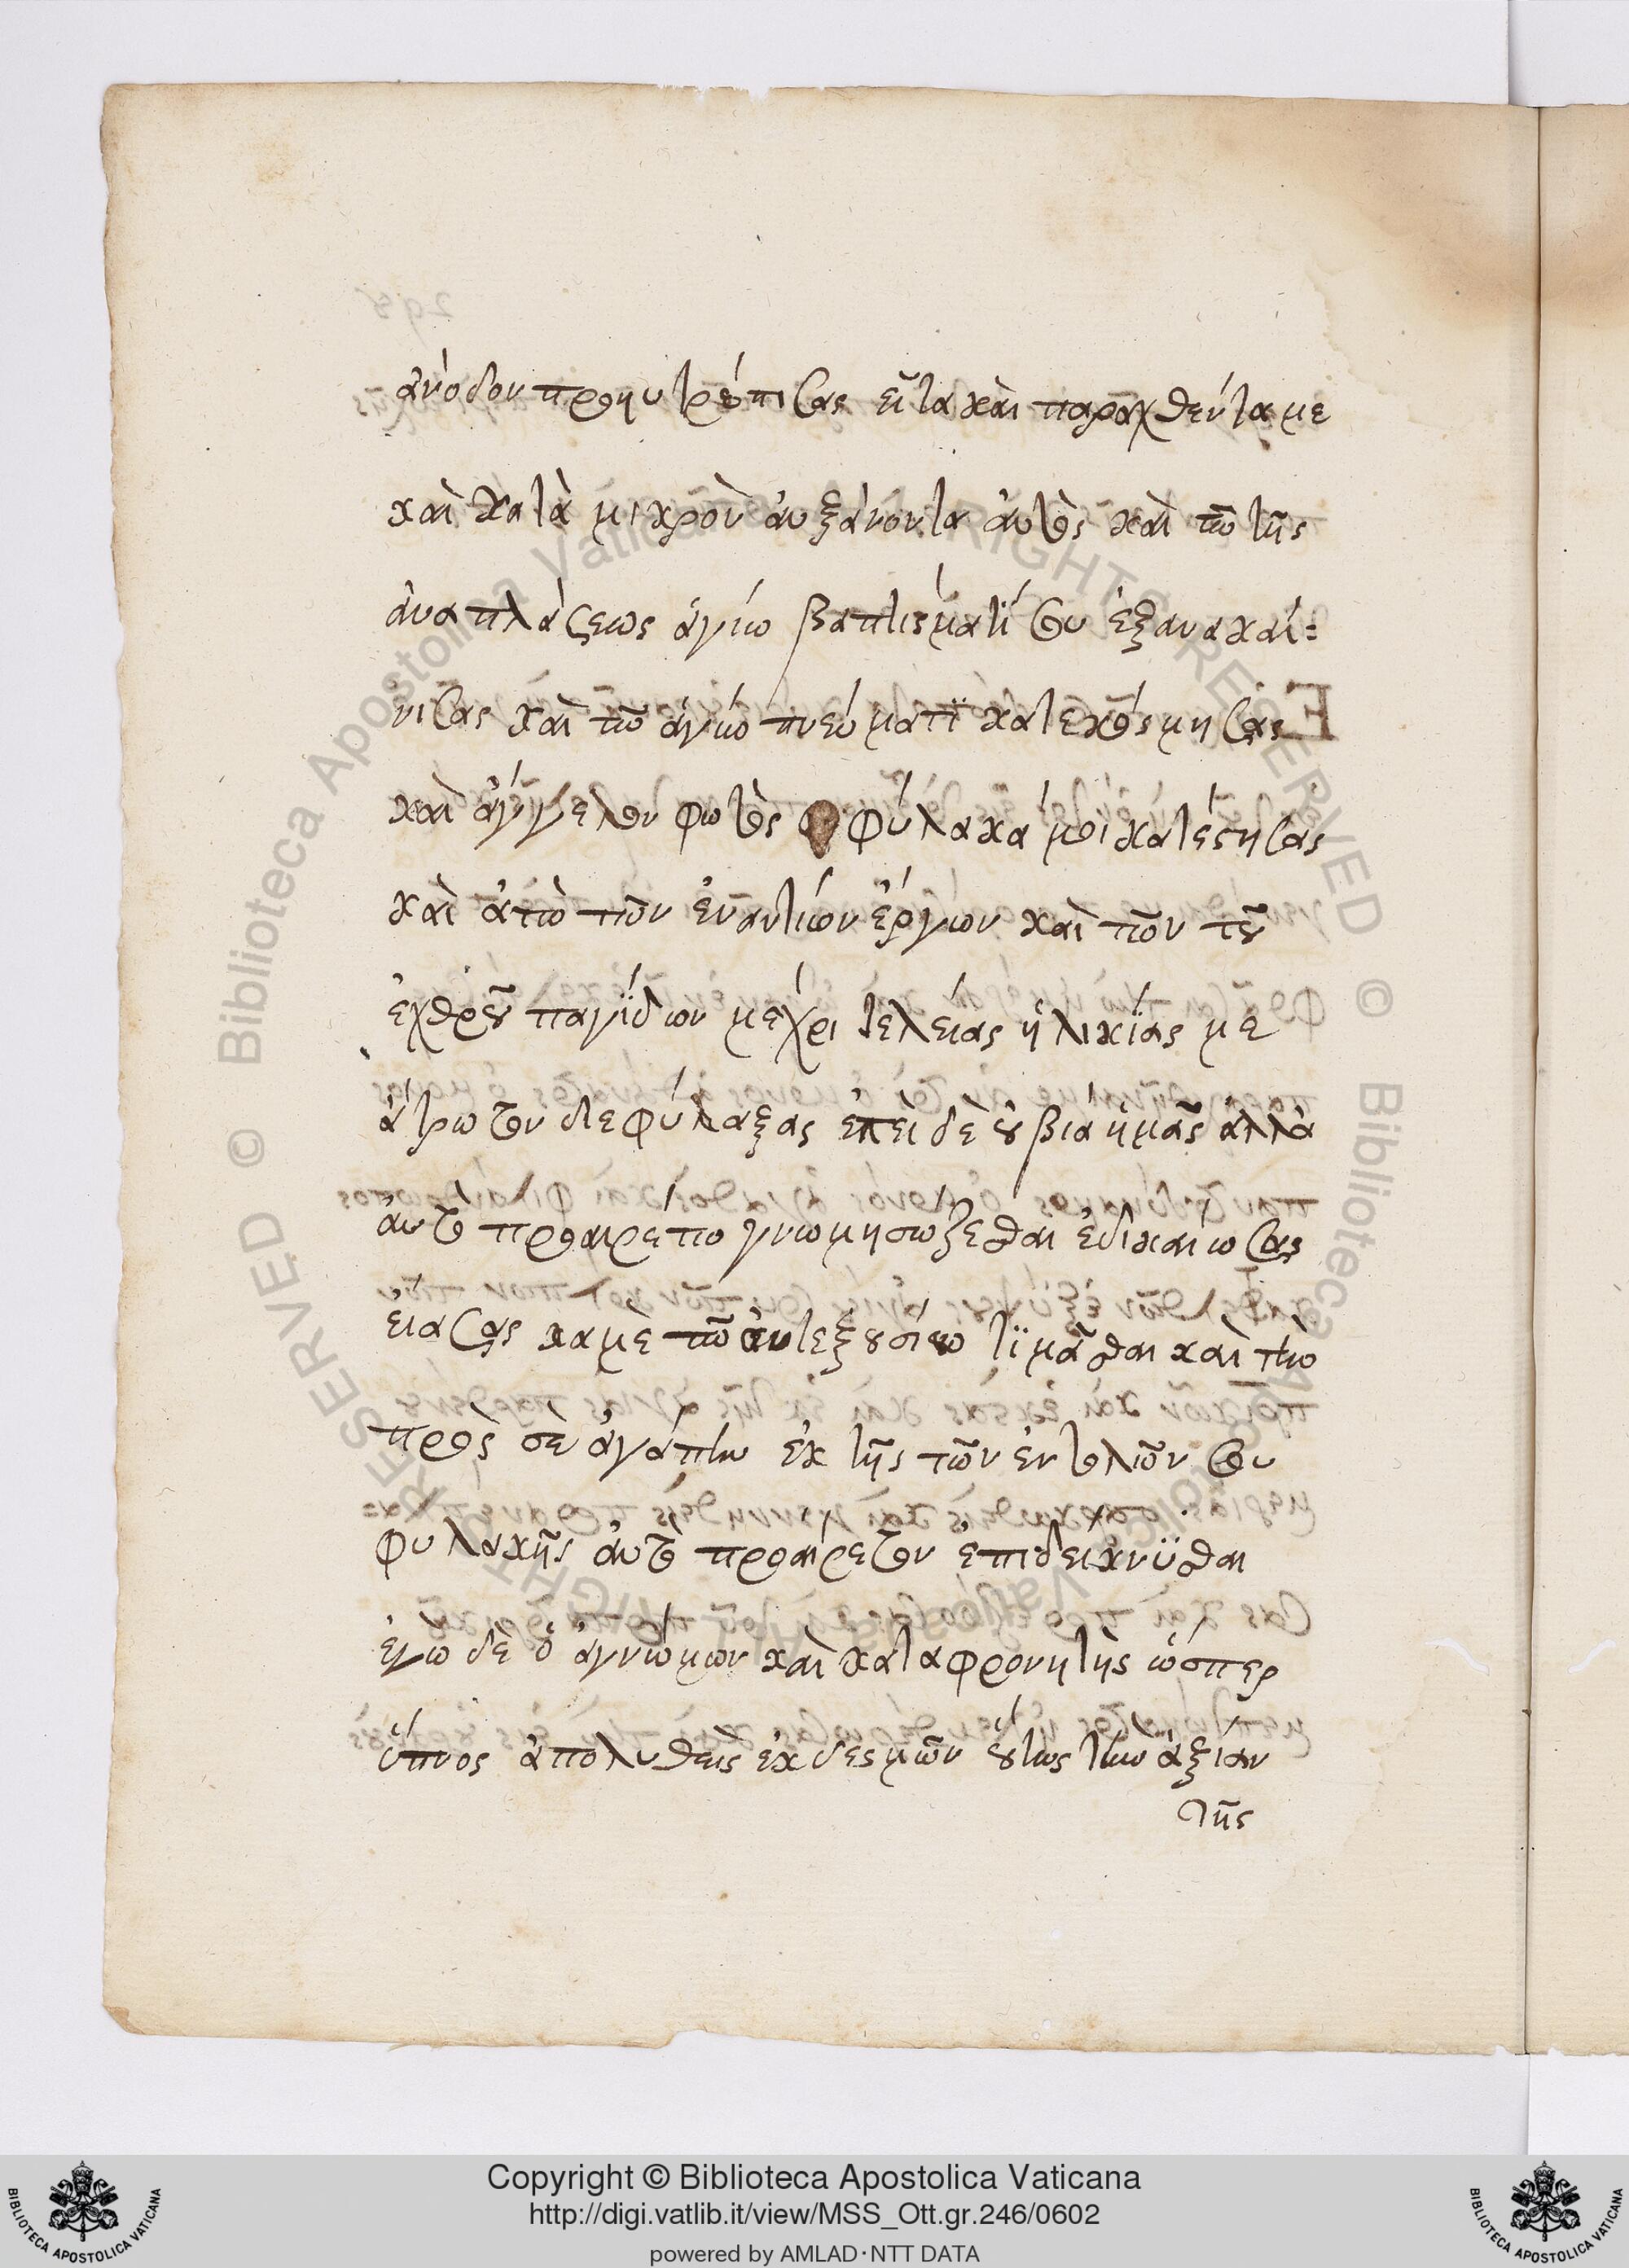 ἄνοδον προηυτρέπισας εἶτα καὶ παραχθέντα με
καὶ κατὰ μικρὸν αὐξάνοντα αὐτὸς καὶ τῶ τῆς
ἀναπλάσεως ἁγίω βαπτίσματί σου ἐξανακαί=
νισας καὶ τῶ ἁγίω πνεύματι κατεκόσμησας
καὶ ἄγγελον φωτὸς φύλακά μοι κατέστησας
καὶ ἀπὸ τῶν ἐναντίων ἔργων καὶ τῶν τοῦ
ἐχθροῦ παγίδων μέχρι τελείας ἡλικίας με
ἄτρωτον διεφύλαξας ἐπεὶ δὲ οὐ βία ἡμᾶς ἀλλὰ
αὐτοπροαιρέτω γνώμη σώζεσθαι ἐδικαίωσας
εἴασας καμὲ τῶ αὐτεξουσίω τιμᾶσθαι καὶ τὴν
πρὸς σὲ ἀγάπην ἐκ τῆς τῶν ἐντολῶν σου
φυλακῆς αὐτοπροαίρετον ἐπιδείκνυσθαι
ἐγὼ δὲ ὁ ἀγνώμων καὶ καταφρονητὴς ὥσπερ
ὕπνος ἀπολυθεὶς ἐκ δεσμῶν οὕτως τὴν ἀξίαν
τῆς
Copyright © Biblioteca Apostolica Vaticana
http://digi.vatlib.it/view/MSS_Ott.gr.246/0602
powered by AMLAD·NTT DATA
BIBLIOTECA APOSTOLICA VATICANA
BIBLIOTECA APOSTOLICA VATICANA